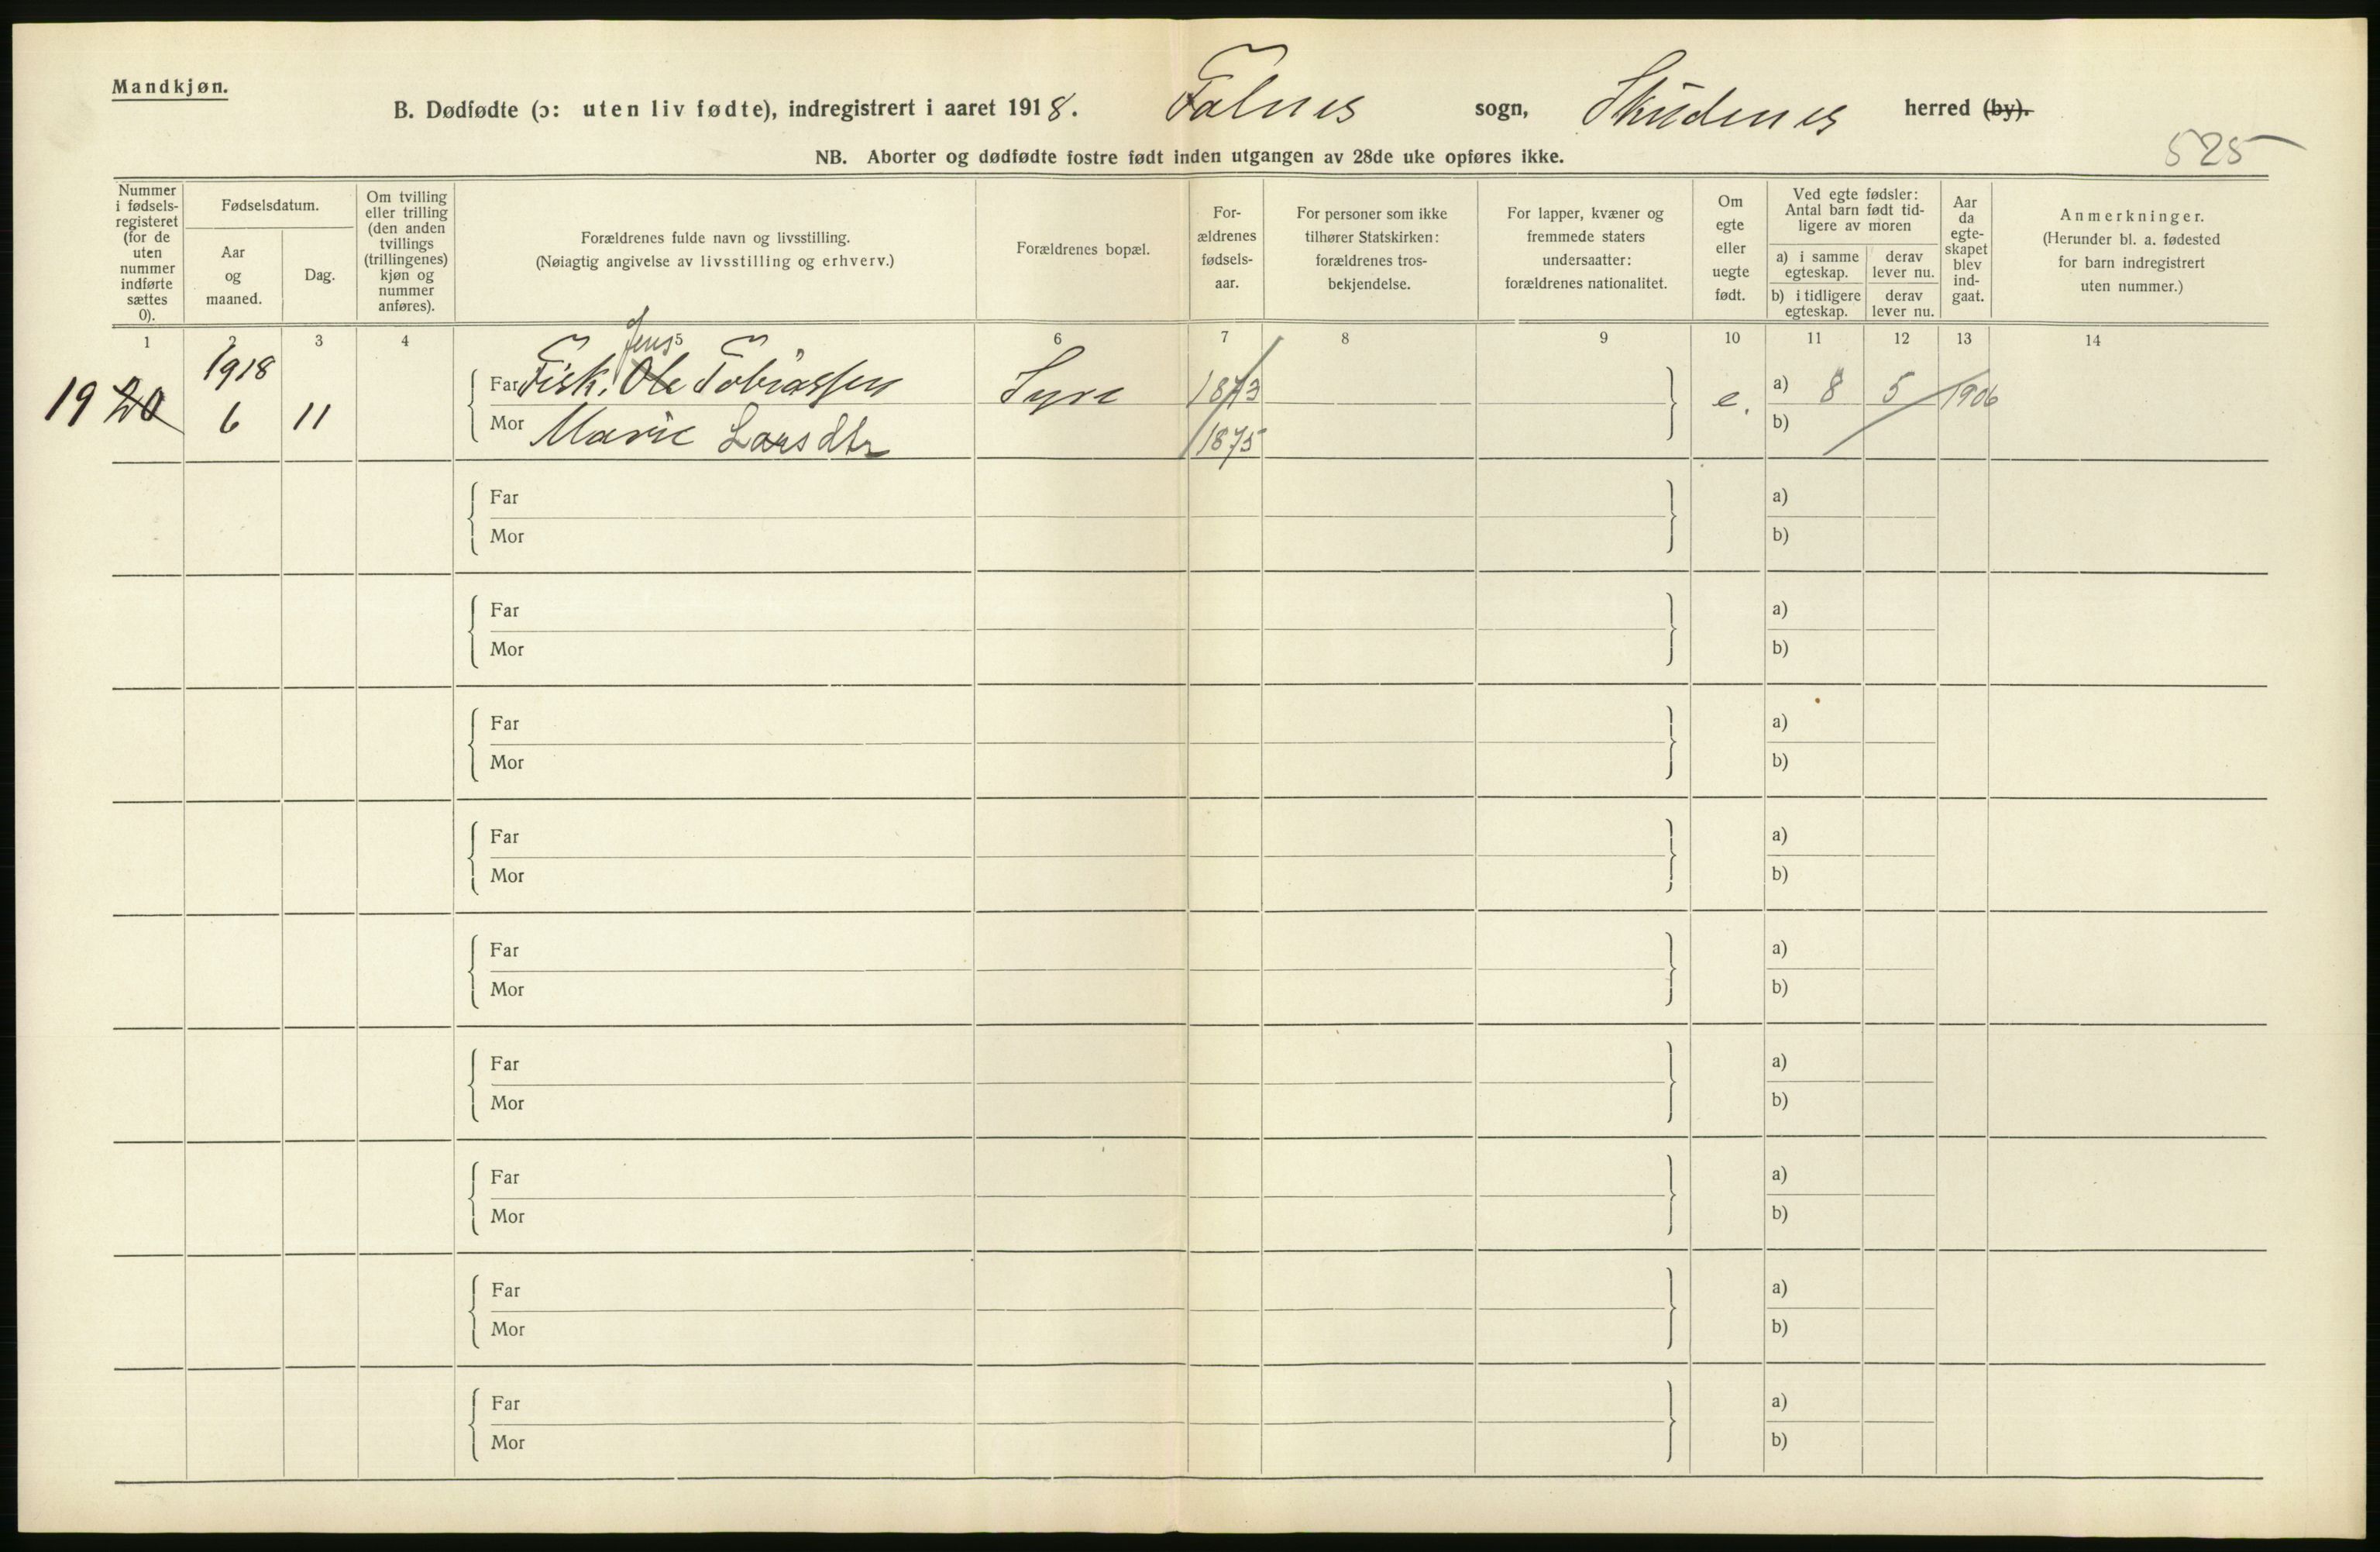 Mandkjøn.
B. Dødfødte (ɔ: uten liv fødte), indregistrert i aaret 1918. Falnes sogn, Skudenes herred (by).
525
NB. Aborter og dødfødte fostre født inden utgangen av 28de uke opføres ikke.
Nummer i fødsels-registeret (for de uten nummer indførte sættes 0).
Fødselsdatum.
Aar og maaned.
Dag.
Om tvilling eller trilling (den anden tvillings (trillingenes) kjøn og nummer anføres).
Forældrenes fulde navn og livsstilling.
(Nøiagtig angivelse av livsstilling og erhverv.)
Forældrenes bopæl.
For-ældrenes fødsels-aar.
For personer som ikke tilhører Statskirken: forældrenes tros-bekjendelse.
For lapper, kvæner og fremmede staters undersaatter: forældrenes nationalitet.
Om egte eller uegte født.
Ved egte fødsler: Antal barn født tid-ligere av moren
a) i samme egteskap.
derav lever nu.
b) i tidligere egteskap.
derav lever nu.
Aar da egte-skapet blev ind-gaat.
Anmerkninger.
(Herunder bl. a. fødested for barn indregistrert uten nummer.)
1 2 3 4 5 6 7 8 9 10 11 12 13 14
19 20 1918 6 11
Jens
Far Fisk. Ole Tobiassen Syre 1873 e. a) 8 5 1906
Mor Marie Larsdtr 1875 b)
Far a)
Mor b)
Far a)
Mor b)
Far a)
Mor b)
Far a)
Mor b)
Far a)
Mor b)
Far a)
Mor b)
Far a)
Mor b)
Far a)
Mor b)
Far a)
Mor b)